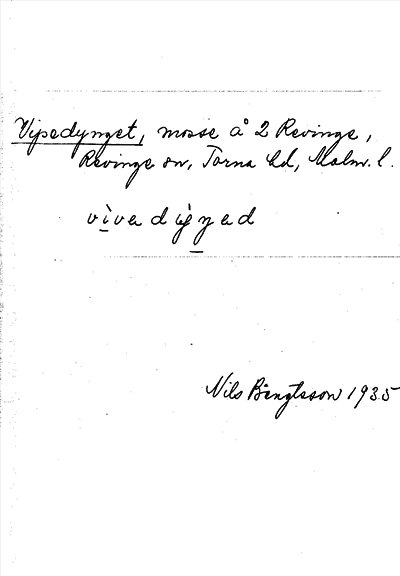 Vipedynget, mosse å 2 Revinge,
Revinge sn, Torna hd, Malm. l.
vìvadi̯ɳ̀ad
Nils Bengtsson 1935